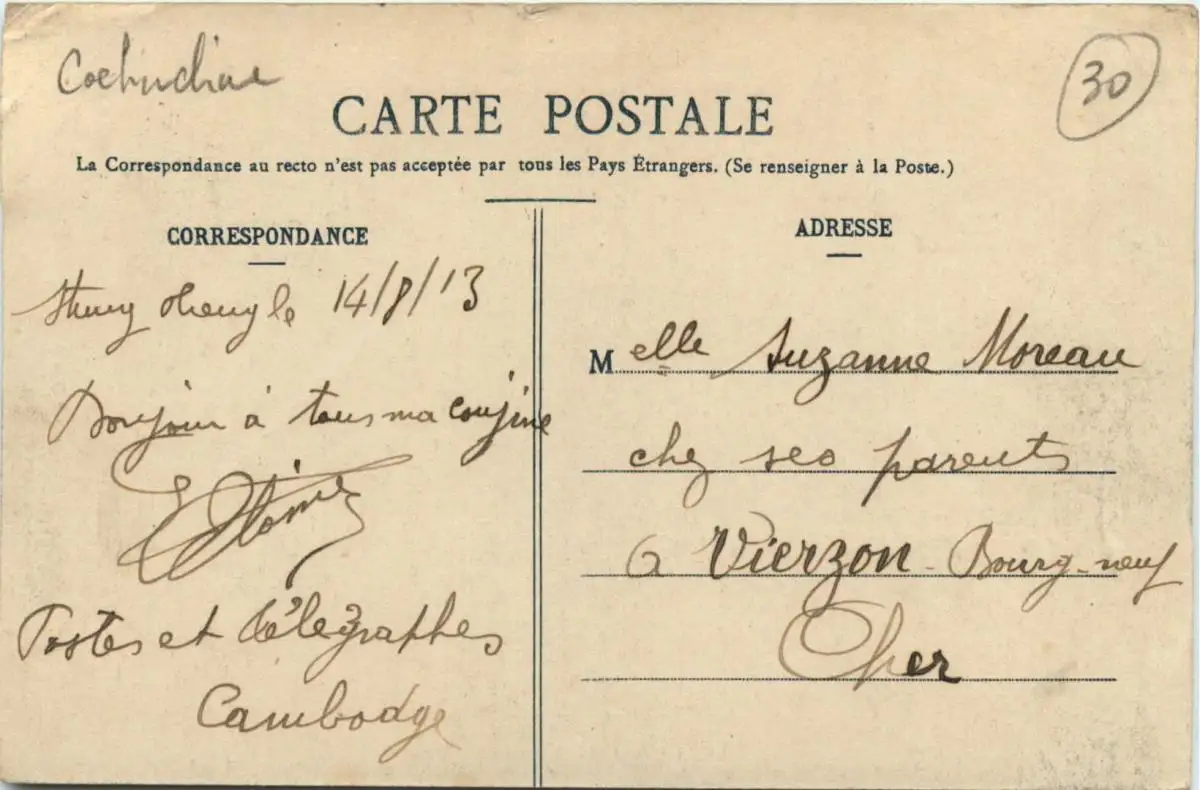 Cochinchine
30
CARTE POSTALE
La Correspondance au recto n'est pas acceptée par tous les Pays Étrangers. (Se renseigner à la Poste.)
CORRESPONDANCE
ADRESSE
Stung Streng le 14/8/13
Bonjour à tous ma cousine
Postes et Télégraphes
Cambodge
Melle Suzanne Moreau
chez ses parents
à Vierzon - Bourg-neuf
Cher